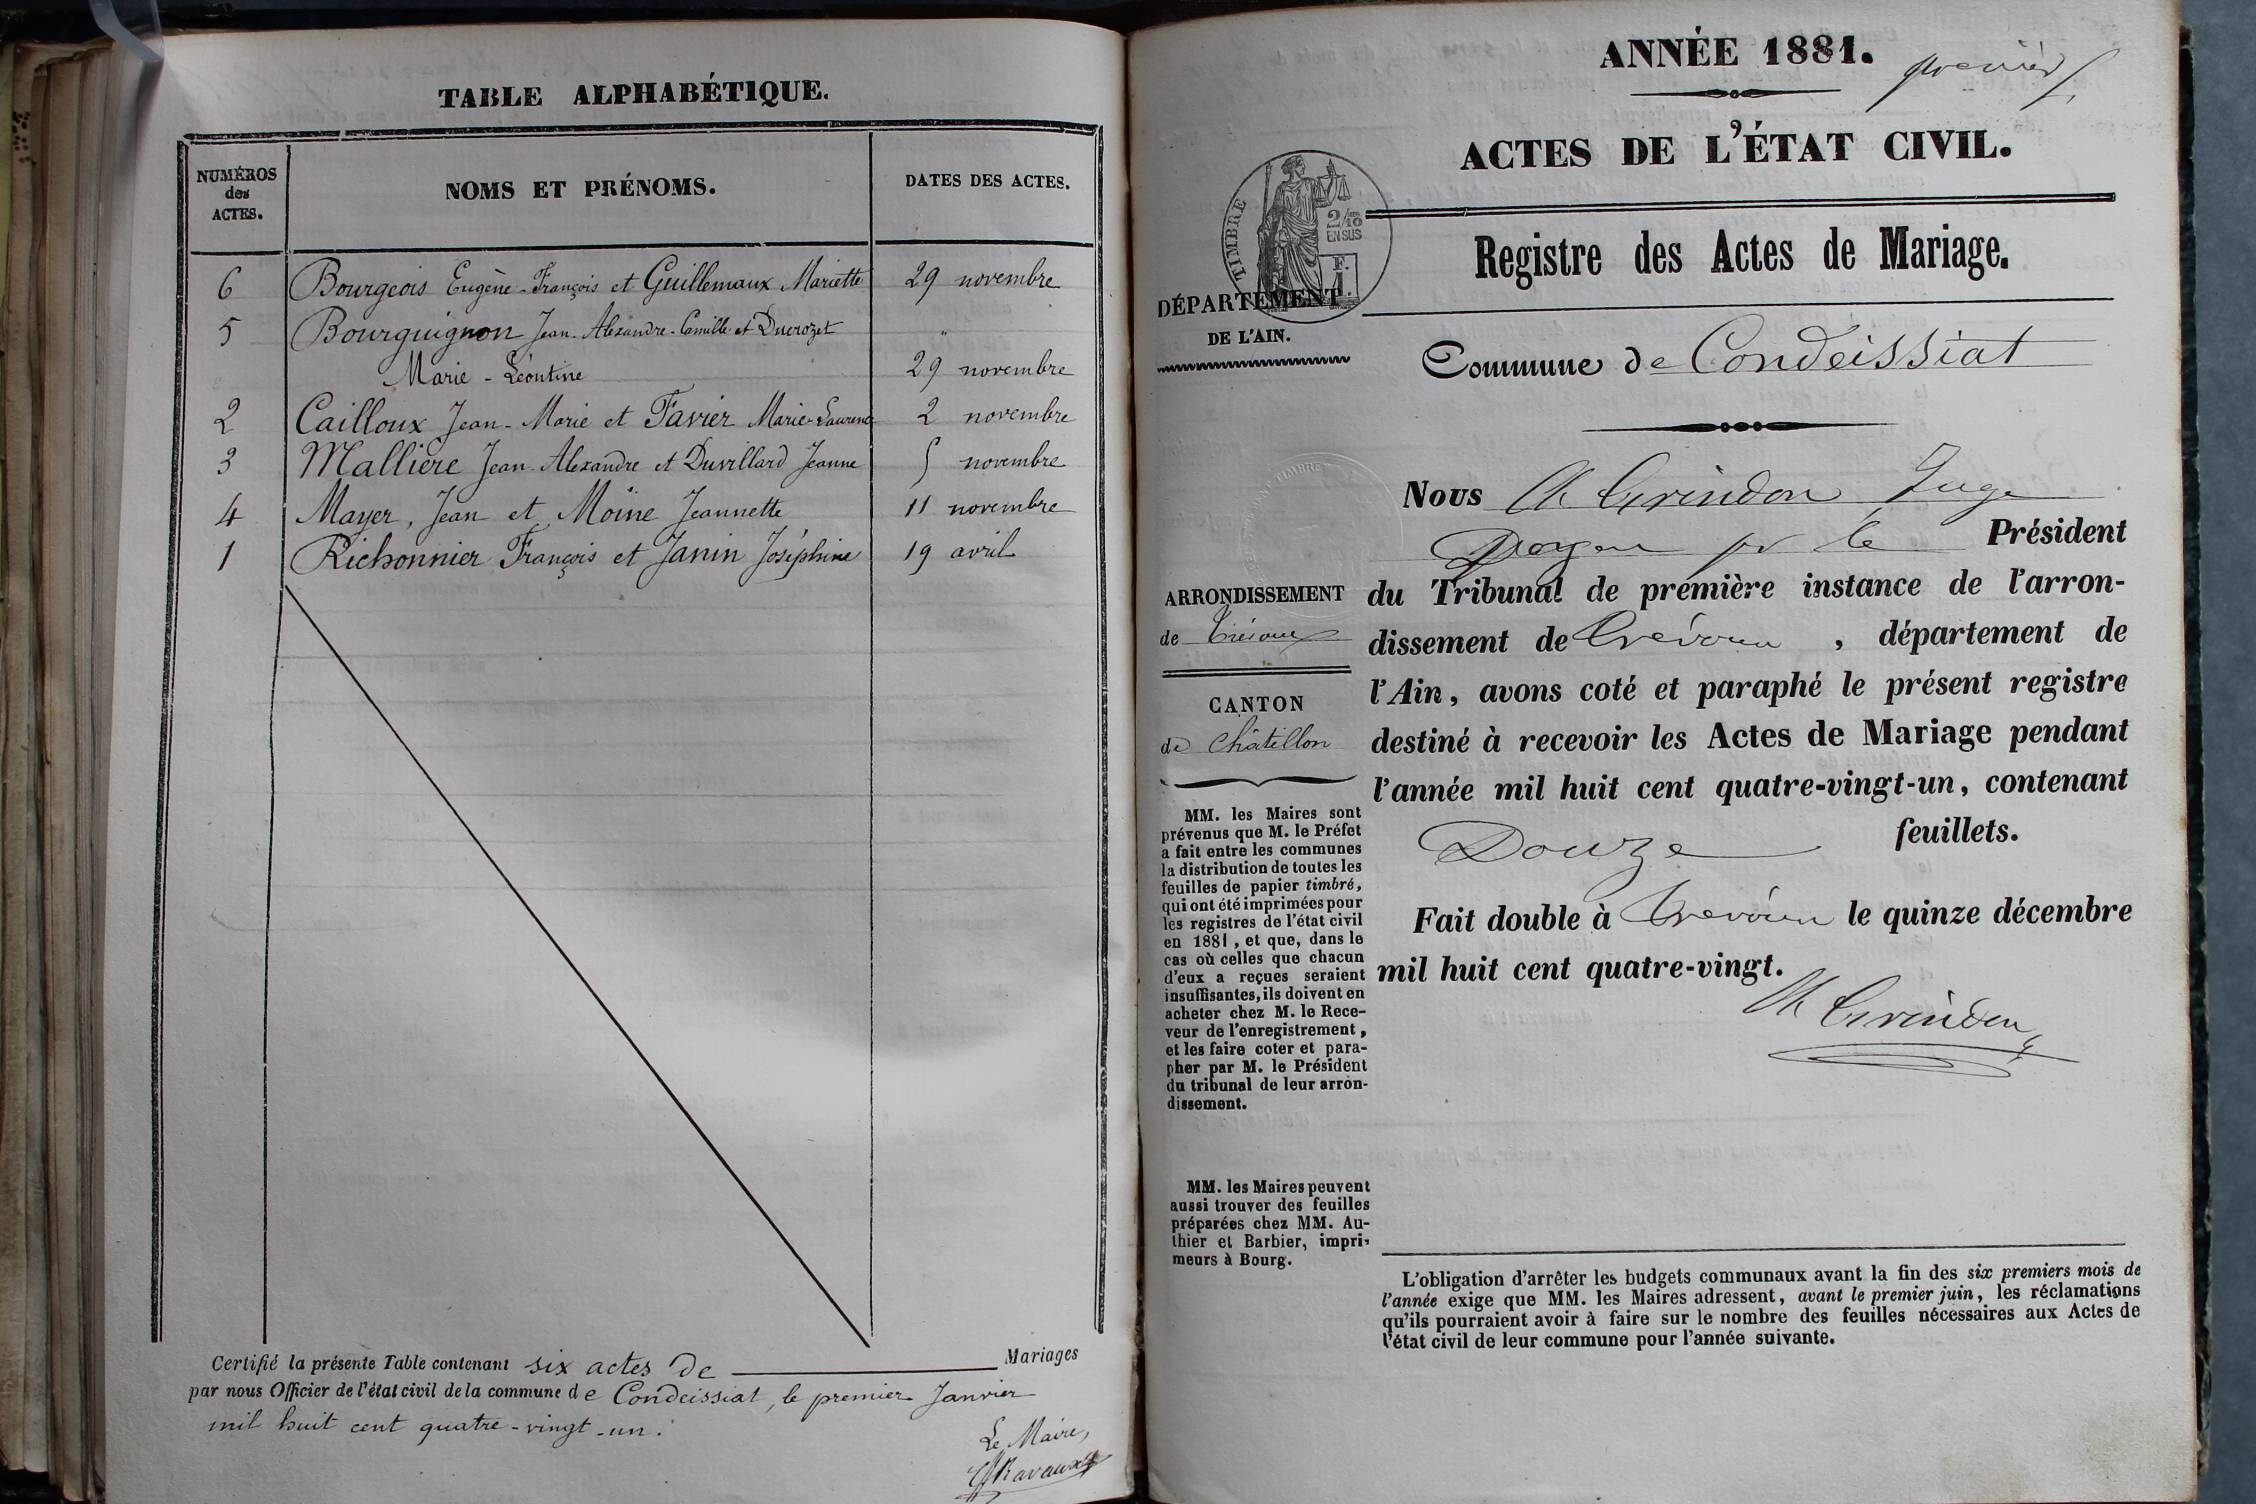 TABLE ALPHABÉTIQUE.
NUMÉROS
des
ACTES.
NOMS ET PRÉNOMS.
DATES DES ACTES.
6 Bourgeois Eugène-François et Guillemaux Mariette 29 novembre
5 Bourguignon Jean-Alexandre-Camille et Ducrozet "
Marie-Léontine 29 novembre
2 Cailloux Jean-Marie et Favier Marie-Laurence 2 novembre
3 Mallière Jean-Alexandre et Duvillard Jeanne 5 novembre
4 Mayer, Jean et Moine Jeannette 11 novembre
1 Richonnier François et Janin Joséphine 19 avril
Certifié la présente Table contenant six actes de Mariages
par nous Officier de l'état civil de la commune de Condeissiat, le premier Janvier
mil huit cent quatre-vingt-un.
Le Maire,
ANNÉE 1881.
premier
ACTES DE L'ÉTAT CIVIL.
TIMBRE
2/10
EN SUS
F.
1
Registre des Actes de Mariage.
DÉPARTEMENT
DE L'AIN.
Commune de Condeissiat
Nous Ch Grindon Juge
Doyen pr le Président
du Tribunal de première instance de l'arron-
dissement de Trévoux, département de
l'Ain, avons coté et paraphé le présent registre
destiné à recevoir les Actes de Mariage pendant
l'année mil huit cent quatre-vingt-un, contenant
Douze feuillets.
Fait double à Trévoux le quinze décembre
mil huit cent quatre-vingt.
Ch Grindon
ARRONDISSEMENT
de Trévoux
CANTON
de Châtillon
MM. les Maires sont
prévenus que M. le Préfet
a fait entre les communes
la distribution de toutes les
feuilles de papier timbré,
qui ont été imprimées pour
les registres de l'état civil
en 1881, et que, dans le
cas où celles que chacun
d'eux a reçues seraient
insuffisantes, ils doivent en
acheter chez M. le Rece-
veur de l'enregistrement,
et les faire coter et para-
pher par M. le Président
du tribunal de leur arron-
dissement.
MM. les Maires peuvent
aussi trouver des feuilles
préparées chez MM. Au-
thier et Barbier, impri-
meurs à Bourg.
L'obligation d'arrêter les budgets communaux avant la fin des six premiers mois de
l'année exige que MM. les Maires adressent, avant le premier juin, les réclamations
qu'ils pourraient avoir à faire sur le nombre des feuilles nécessaires aux Actes de
l'état civil de leur commune pour l'année suivante.